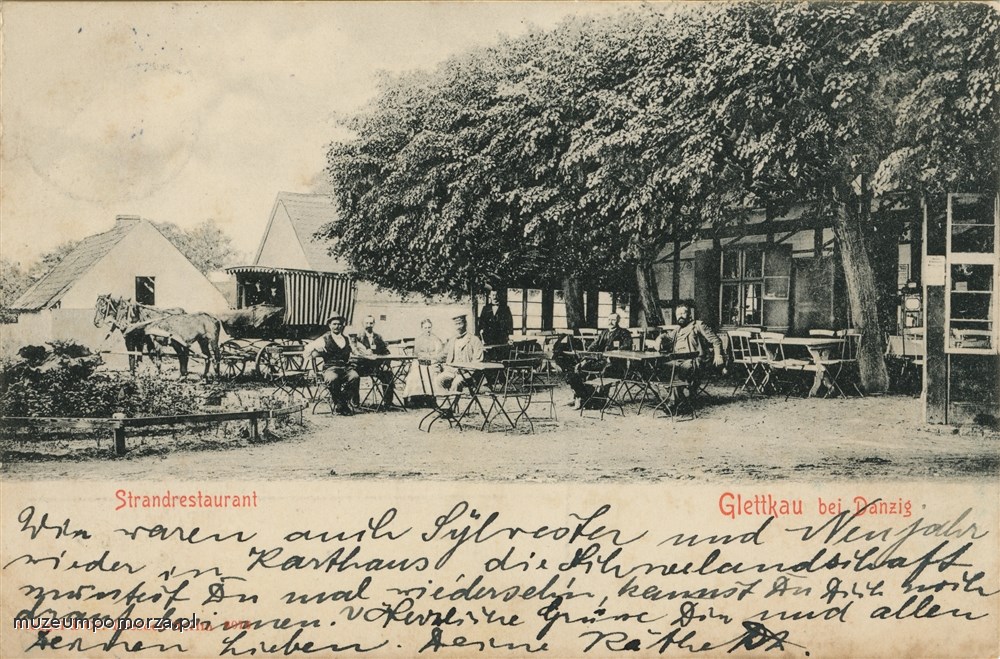 Strandrestaurant
Glettkau bei Danzig
Wir waren auch Sylvester und Neujahr
wieder in Karthaus die Schneelandschaft
Du mal wiedersehn, kannst Du Dich noch
Herzliche Grüße Dir und allen
Deinen Lieben. Deine Käthe
muzeumpomorza.pl